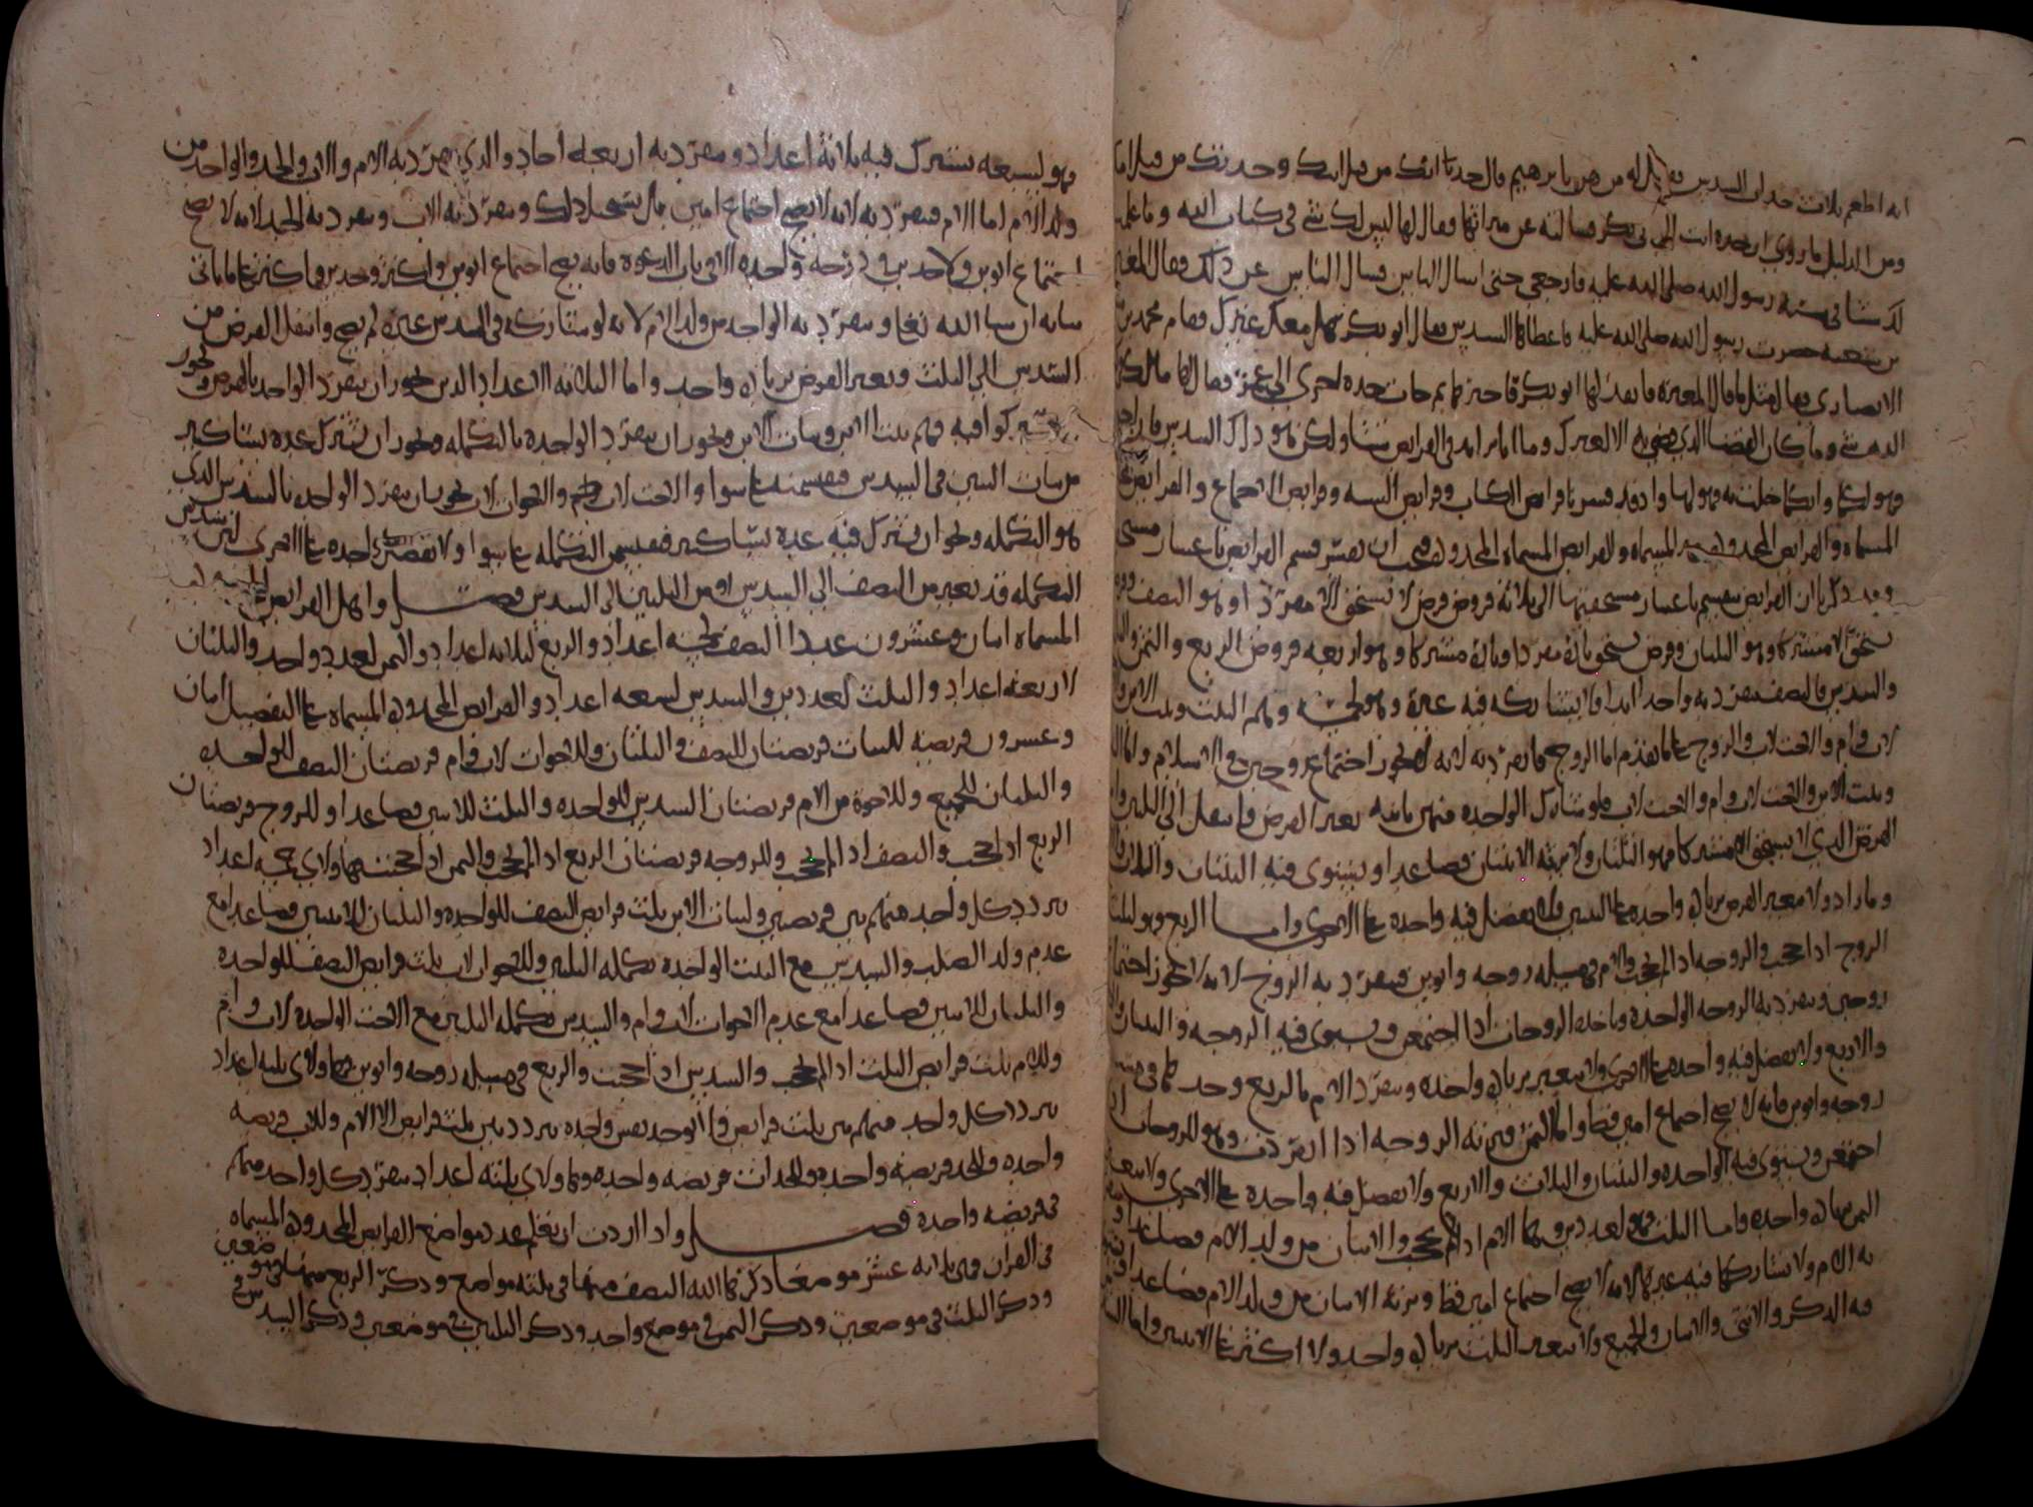 انه اطعم ثلاث جدات السدس قيل له من هن يا ابرهيم قال جدتا ابيك من قبل ابيه وجدتك من قبل امك
ومن الدليل ما روي ان جده اتت الى ابي بكر فسالته عن ميراثها فقال لها ليس لك شي في كتاب الله وما علمت
لك شيا في سنه رسول الله صلى الله عليه فارجعي حتى اسال الناس فسال الناس عن ذلك فقال المغيره
بن شعبه حضرت رسول الله صلى الله عليه فاعطاها السدس فقال ابو بكر هل معك غيرك فقام محمد بن
الانصاري فقال مثل ما قال المغيره فانفذه لها ابو بكر ثم جات جده اخرى الى عمر فقال لها مالك في كتاب
الله شي وما كان القضا الذي قضي به الا لغيرك وما انا بزايد في الفرايض شيا ولكن هو ذاك السدس فان اجتمعتما
فهو لكما وايكما خلت به فهو لها واذ قد فسرنا فرايض الكتاب وفرايض السنه وفرايض الاجماع والفرايض غير
المسماه والفرايض المحدوده المسماه والفرايض المسماه المحدوده فيجب ان نفسر قسم الفرايض باعتبار مستحقيها
وقد ذكرنا ان الفرايض تنقسم باعتبار مستحقيها الى ثلاثة فروض فرض لا يستحق الا منفردا وهو النصف وفرض
يستحق الا مشتركا وهو الثلثان وفرض يستحق تارة منفردا وتارة مشتركا وهو اربعه فروض الربع والثمن والثلث
والسدس فالنصف ينفرد به واحد ابدا ولا يشاركه فيه غيره وهو لخمسه وهم البنت وبنت الابن والاخت
لاب وام والاخت لاب والزوج على ما تقدم اما الزوج فانفرد به لانه لا يجوز اجتماع زوجين في الاسلام واما البنت
وبنت الابن والاخت لاب وام والاخت لاب فلو شارك الواحده منهن ثانيه تغير الفرض وانتقل الى الثلثين واما
الفرض الذي لا يستحق الا مشتركا فهو الثلثان ولا يرثه الا اثنتان فصاعدا ويستوي فيه الثنتان والثلاث
وما زاد ولا يتغير الفرض بزياده واحده على الثنتين ولا تفضل فيه واحده على الاخرى واما الربع وهو لثلثه
الزوج اذا حجب والزوجه اذا لم تحجب والام في مسله زوجه وابوين فينفرد به الزوج لانه لا يجوز اجتماع
زوجين وتنفرد به الزوجه الواحده وتاخذه الزوجات اذا اجتمعن ويستوي فيه الزوجه والثنتان والثلاث
والاربع ولا تفضل فيه واحده على الاخرى ولا يتغير بزياده واحده وتنفرد الام بالربع وحدها في مسله
زوجه وابوين فانه لا يصح اجتماع امين قط واما الثمن فترثه الزوجه اذا انفردت وهو للزوجات اذا
اجتمعن ويستوي فيه الواحده والثنتان والثلاث والاربع ولا تفضل فيه واحدة على الاخرى ولا يتغير
الثمن بزياده واحده واما الثلث فهو لعددين وهما الام اذا لم تحجب والاثنان من ولد الام فصاعدا
به الام ولا يشاركها فيه غيرها لانه لا يصح اجتماع امين قط ويرثه الاثنان من ولد الام فصاعدا
فيه الذكر والانثى والاثنان والجميع ولا يتغير الثلث بزياده واحد ولا اكثر على الاثنين واما السدس
فهو لسبعه يشترك فيه ثلاثة اعداد وينفرد به اربعه احاد والذي ينفرد به الام والاب والجد والواحد من
ولد الام اما الام فتنفرد به لانه لا يصح اجتماع امين بل يستحيل ذلك وينفرد به الاب وينفرد به الجد لانه لا يصح
اجتماع ابوين ولا جدين في درجه واحده الا في باب الدعوه فانه يصح اجتماع ابوين واكثر وجدين واكثر على ما ياتي
بيانه ان شا الله تعالى وينفرد به الواحد من ولد الام لانه لو شاركه في السدس غيره لم يصح وانتقل الفرض من
السدس الى الثلث وتغير الفرض بزياده واحد واما الثلاثه الاعداد الذين يجوز ان ينفرد الواحد بالفرض ويجوز
ان يشتركوا فيه فهم بنت الابن وبنات الابن ويجوز ان تنفرد الواحده بالتكمله ويجوز ان يشترك عده يتشاكين
من بنات البنين في السدس فيقسمنه على سوا والاخت لاب وام والاخوات لاب يجوز ان تنفرد الواحده بالسدس الذي
هو التكمله ويجوز ان يشترك فيه عدة يتشاكين فيقسمن التكمله على سوا ولا تفضل واحده على الاخرى لان سدس
التكمله قد تغير من النصف الى السدس او من الثلثين الى السدس فصل واهل الفرايض
المسماه اثنان وعشرون عددا النصف لخمسه اعداد والربع لثلاثه اعداد والثمن لعدد واحد والثلثان
لاربعه اعداد والثلث لعددين والسدس لسبعه اعداد والفرايض المحدوده المسماه على التفصيل اثنان
وعشرون فريضه للبنات فريضتان النصف والثلثان وللاخوات لاب وام فريضتان النصف للواحده
والثلثان للجميع وللاخوة من الام فريضتان السدس للواحده والثلث للاثنين فصاعدا وللزوج فريضتان
الربع اذا حجب والنصف اذا لم يحجب وللزوجه فريضتان الربع اذا لم تحجب والثمن اذا حجبت فهاولاي خمسه اعداد
تردد كل واحد منهم بين فريضتين ولبنات الابن ثلث فرايض النصف للواحده والثلثان للاثنتين فصاعدا مع
عدم ولد الصلب والسدس مع البنت الواحدة تكمله الثلثين وللاخوات لاب ثلث فرايض النصف للواحده
والثلثان للاثنتين فصاعدا مع عدم الاخوات لاب وام والسدس تكمله الثلثين مع الاخت الواحده لاب وام
وللام ثلث فرايض الثلث اذا لم تحجب والسدس اذا حجبت والربع في مسله زوجه وابوين فهاولاي ثلثه اعداد
تردد كل واحد منهم بين ثلث فرايض ولا يوجد نفس واحده تردد بين ثلث فرايض الا الام وللاب فريضه
واحده وللجد فريضه واحده وللجدات فريضه واحده فهاولاي ثلثه اعداد ينفرد كل واحد منهم
في فريضه واحده فصل واذا اردت ان تعلم عدد مواضع الفرايض المحدوده المسماه
في القران فهي ثلاثه عشر موضعا ذكر الله النصف منها في ثلثه مواضع وذكر الربع منها في موضعين
وذكر الثلث في موضعين وذكر الثمن في موضع واحد وذكر الثلثين في موضعين وذكر السدس في